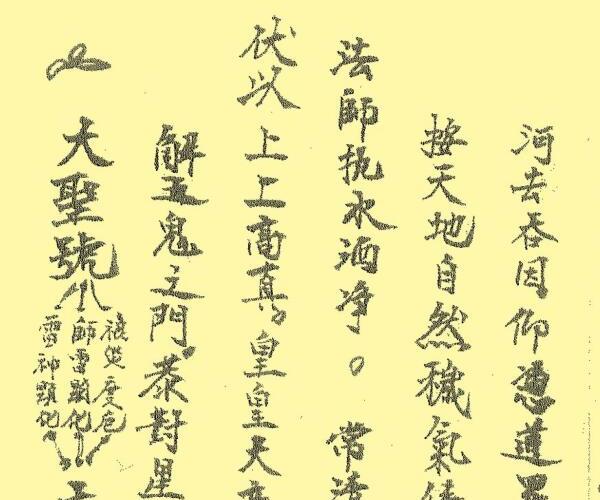 河去吞因仰憑道
按天地自然穢氣
法師执水洒净。常清
伏以上上高真皇皇天
解五鬼之門恭對星
大聖號
禳災度危
師雷顯化
雷神顯化